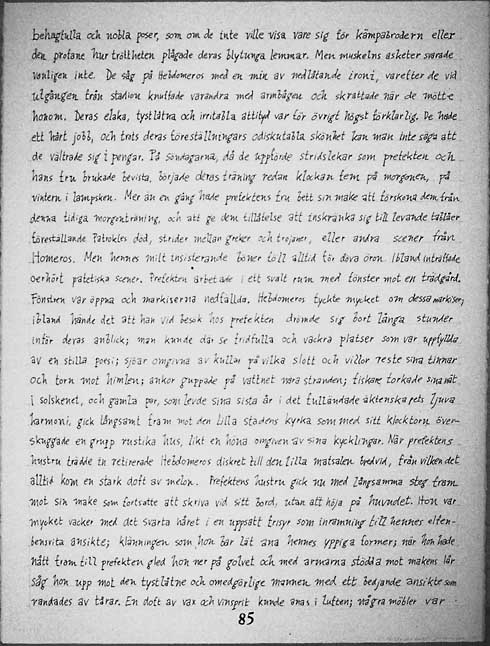 behagfulla och nobla poser, som om de inte ville visa vare sig för kämpabrodern eller
den profane hur tröttheten plågade deras blytunga lemmar. Men muskelns asketer svarade
vanligen inte. De såg på Hebdomeros med en min av nedlåtande ironi, varefter de vid
utgången från stadion knuffade varandra med armbågen och skrattade när de mötte
honom. Deras elaka, tystlåtna och irritabla attityd var för övrigt högst förklarlig. De hade
ett hårt jobb, och trots deras föreställningars odiskutabla skönhet kan man inte säga att
de vältrade sig i pengar. På söndagarna, då de uppförde stridslekar som prefekten och
hans fru brukade bevista, började deras träning redan klockan fem på morgonen, på
vintern i lampsken. Mer än en gång hade prefektens fru bett sin make att förskona dem från
denna tidiga morgonträning, och att ge dem tillåtelse att inskränka sig till levande tablåer
föreställande Patrokles död, strider mellan greker och trojaner, eller andra scener från
Homeros. Men hennes milt insisterande böner föll alltid för döva öron. Ibland inträffade
oerhört patetiska scener. Prefekten arbetade i ett svalt rum med fönster mot en trädgård.
Fönstren var öppna och markiserna nedfällda. Hebdomeros tyckte mycket om dessa markiser;
ibland hände det att han vid besök hos prefekten drömde sig bort långa stunder
inför deras anblick; man kunde där se fridfulla och vackra platser som var uppfyllda
av en stilla poesi; sjöar omgivna av kullar på vilka slott och villor reste sina tinnar
och torn mot himlen; ankor guppade på vattnet nära stranden; fiskare torkade sina nät
i solskenet, och gamla par, som levde sina sista år i det fulländade äktenskapets ljuva
harmoni, gick långsamt fram mot den lilla stadens kyrka som med sitt klocktorn över-
skuggade en grupp rustika hus, likt en höna omgiven av sina kycklingar. När prefektens
hustru trädde in retirerade Hebdomeros diskret till den lilla matsalen bredvid, från vilken det
alltid kom en stark doft av melon. Prefektens hustru gick nu med långsamma steg fram
mot sin make som fortsatte att skriva vid sitt bord, utan att höja på huvudet. Hon var
mycket vacker med det svarta håret i en uppsatt frisyr som inramning till hennes elfen-
bensvita ansikte; klänningen som hon bar lät ana hennes yppiga former; när hon hade
nått fram till prefekten gled hon ner på golvet och med armarna stödda mot makens lår
såg hon upp mot den tystlåtne och omedgörlige mannen med ett bedjande ansikte som
randades av tårar. En doft av vax och vinsprit kunde anas i luften; några möbler var
85